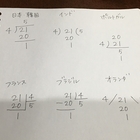 日本・韓国 インド ポルトガル
5
4)21 4)21(5 20
20 20 4)21
1 1 5
1
フランス ブラジル オランダ
21|4 21|4 4/21\
20|5 -20|5 20
1 1